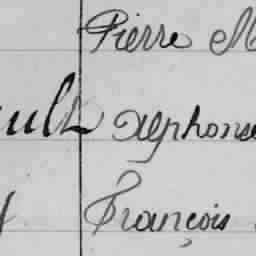 Pierre M
ult Alphonse
François